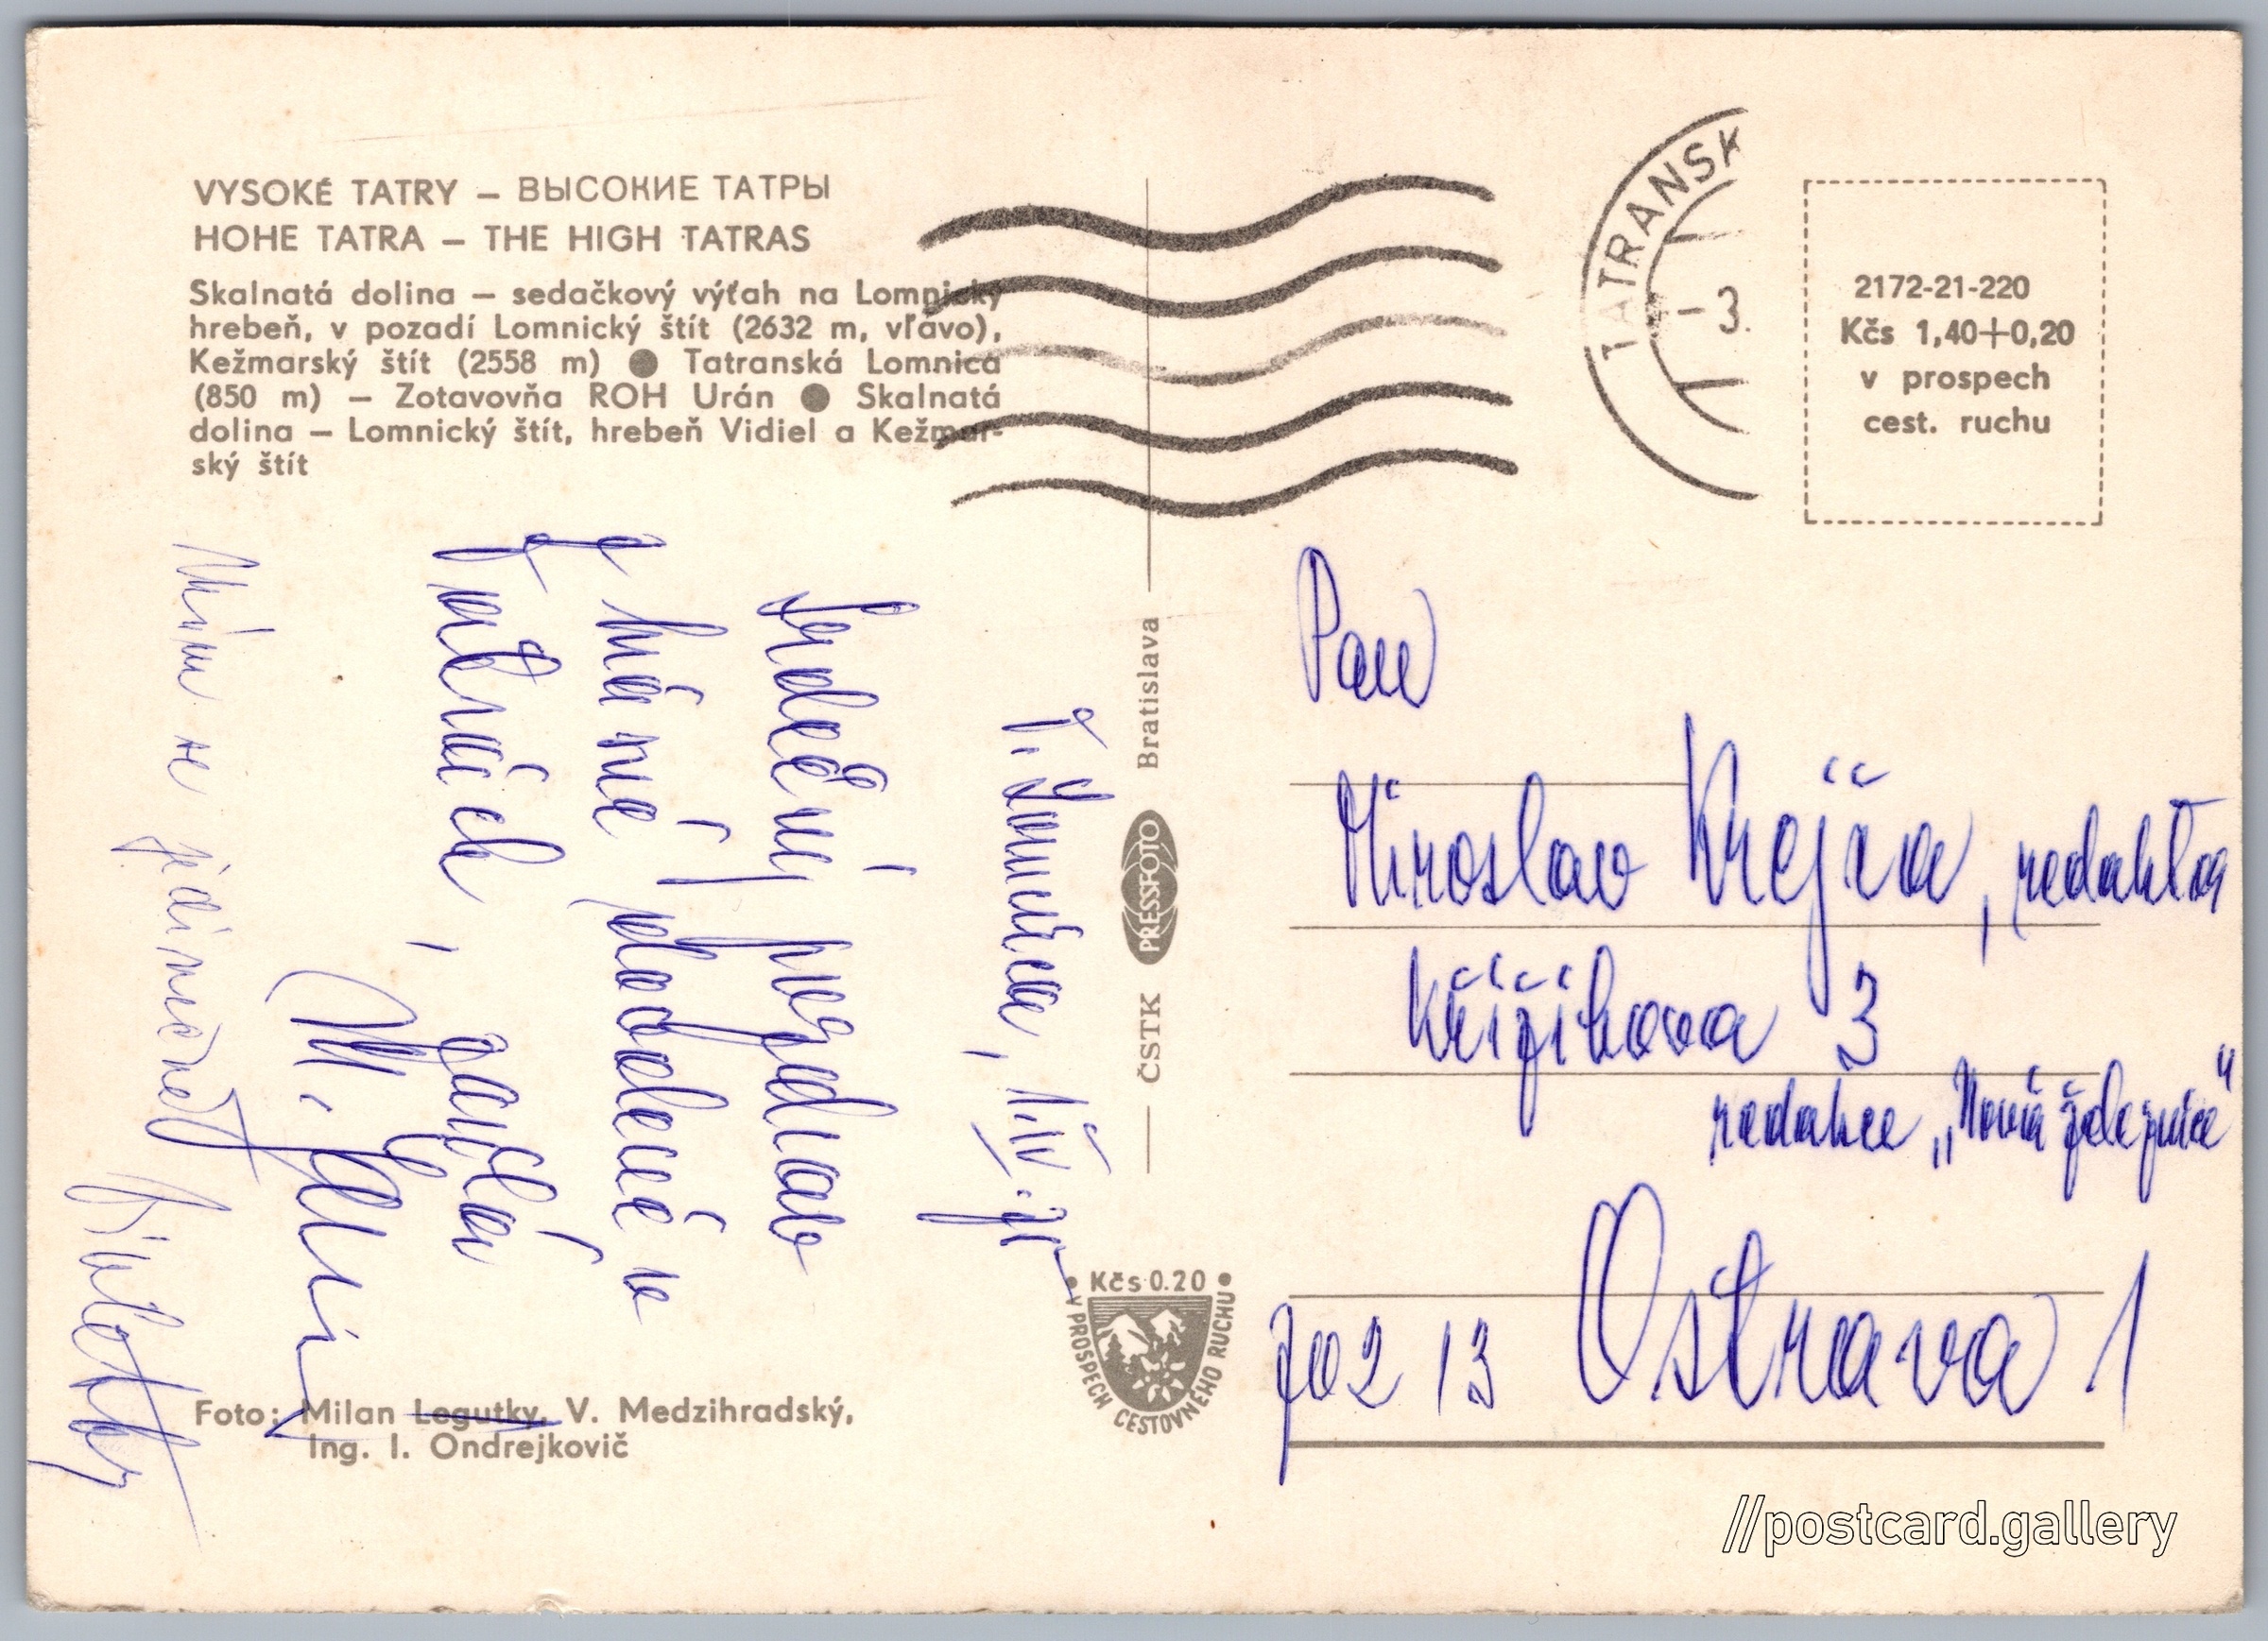 VYSOKÉ TATRY – ВЫСОКИЕ ТАТРЫ
HOHE TATRA – THE HIGH TATRAS
Skalnatá dolina – sedačkový výťah na Lomnický
hrebeň, v pozadí Lomnický štít (2632 m, vľavo),
Kežmarský štít (2558 m) ● Tatranská Lomnica
(850 m) – Zotavovňa ROH Urán ● Skalnatá
dolina – Lomnický štít, hrebeň Vidiel a Kežmar-
ský štít
T. Lomnica, 1.IV.
Srdečný pozdrav
z krásné dovolené v
Tatrách,
M.
Mám se jedinečně
Foto: Milan Legutky, V. Medzihradský,
Ing. I. Ondrejkovič
ČSTK PRESSFOTO Bratislava
• Kčs 0.20 •
V PROSPECH CESTOVNÉHO RUCHU
TATRANSK
-3.
2172-21-220
Kčs 1,40+0,20
v prospech
cest. ruchu
Pan
Miroslav Krejča, redaktor
Křižíkova 3
redakce „Nová železnice"
702 13 Ostrava 1
//postcard.gallery